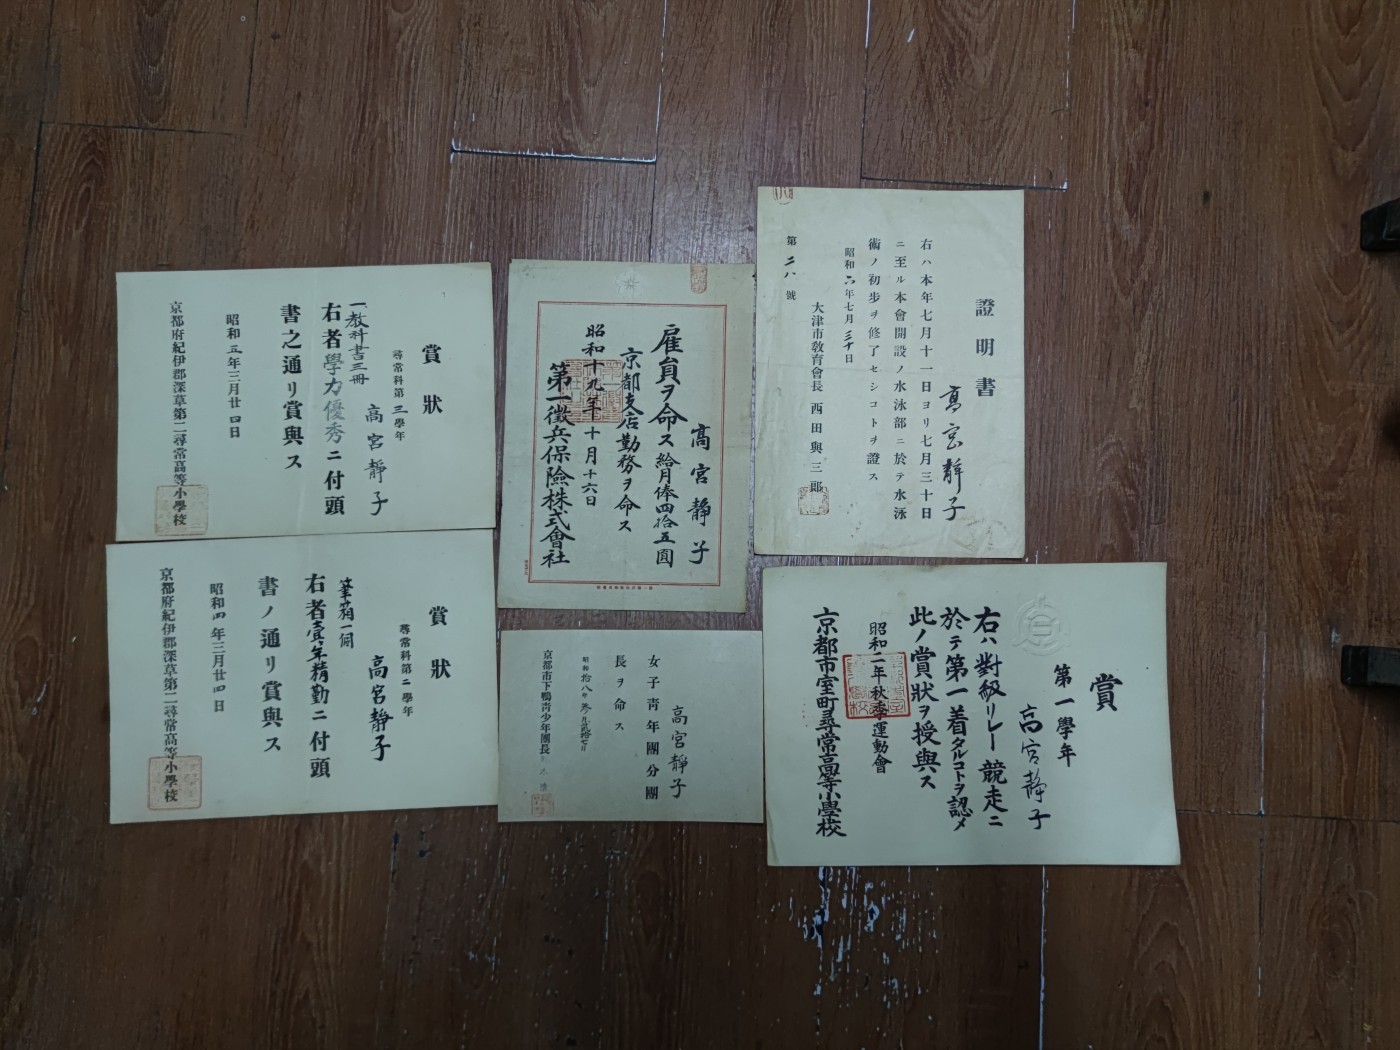 賞狀
尋常科第三學年
高宮靜子
一教科書三冊
右者學力優秀ニ付頭
書之通リ賞與ス
昭和五年三月廿四日
京都府紀伊郡深草第二尋常高等小學校
賞狀
尋常科第二學年
高宮靜子
筆箱一個
右者壹年精勤ニ付頭
書ノ通リ賞與ス
昭和四年三月廿四日
京都府紀伊郡深草第二尋常高等小學校
高宮靜子
雇員ヲ命ス給月俸四拾五圓
京都支店勤務ヲ命ス
昭和十九年十月十六日
第一徴兵保險株式會社
高宮靜子
女子靑年團分團
長ヲ命ス
昭和拾八年參月貳拾七日
京都市下鴨靑少年團長
證明書
高宮靜子
右ハ本年七月十一日ヨリ七月三十日
ニ至ル本會開設ノ水泳部ニ於テ水泳
術ノ初步ヲ修了セシコトヲ證ス
昭和六年七月三十日
大津市敎育會長 西田與三郎
第二八號
賞
第一學年
高宮靜子
右ハ對級リレー競走ニ
於テ第一着タルコトヲ認メ
此ノ賞狀ヲ授與ス
昭和二年秋季運動會
京都市室町尋常高等小學校